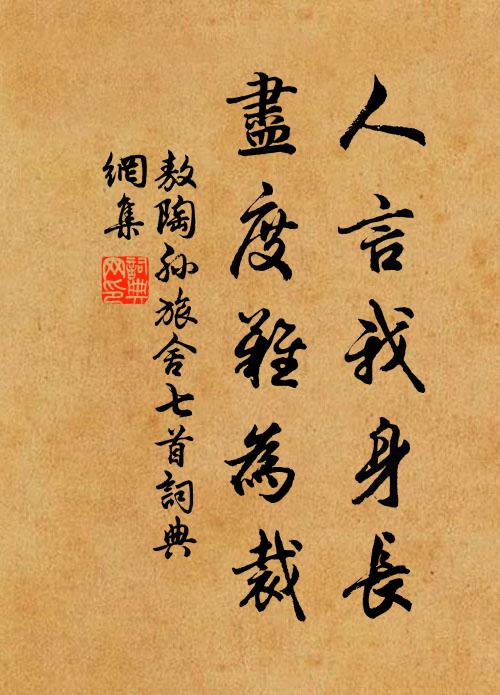 人言我身長
盡度難為裁
敖陶孫旅舍七首詞典
網集
詞典
网印